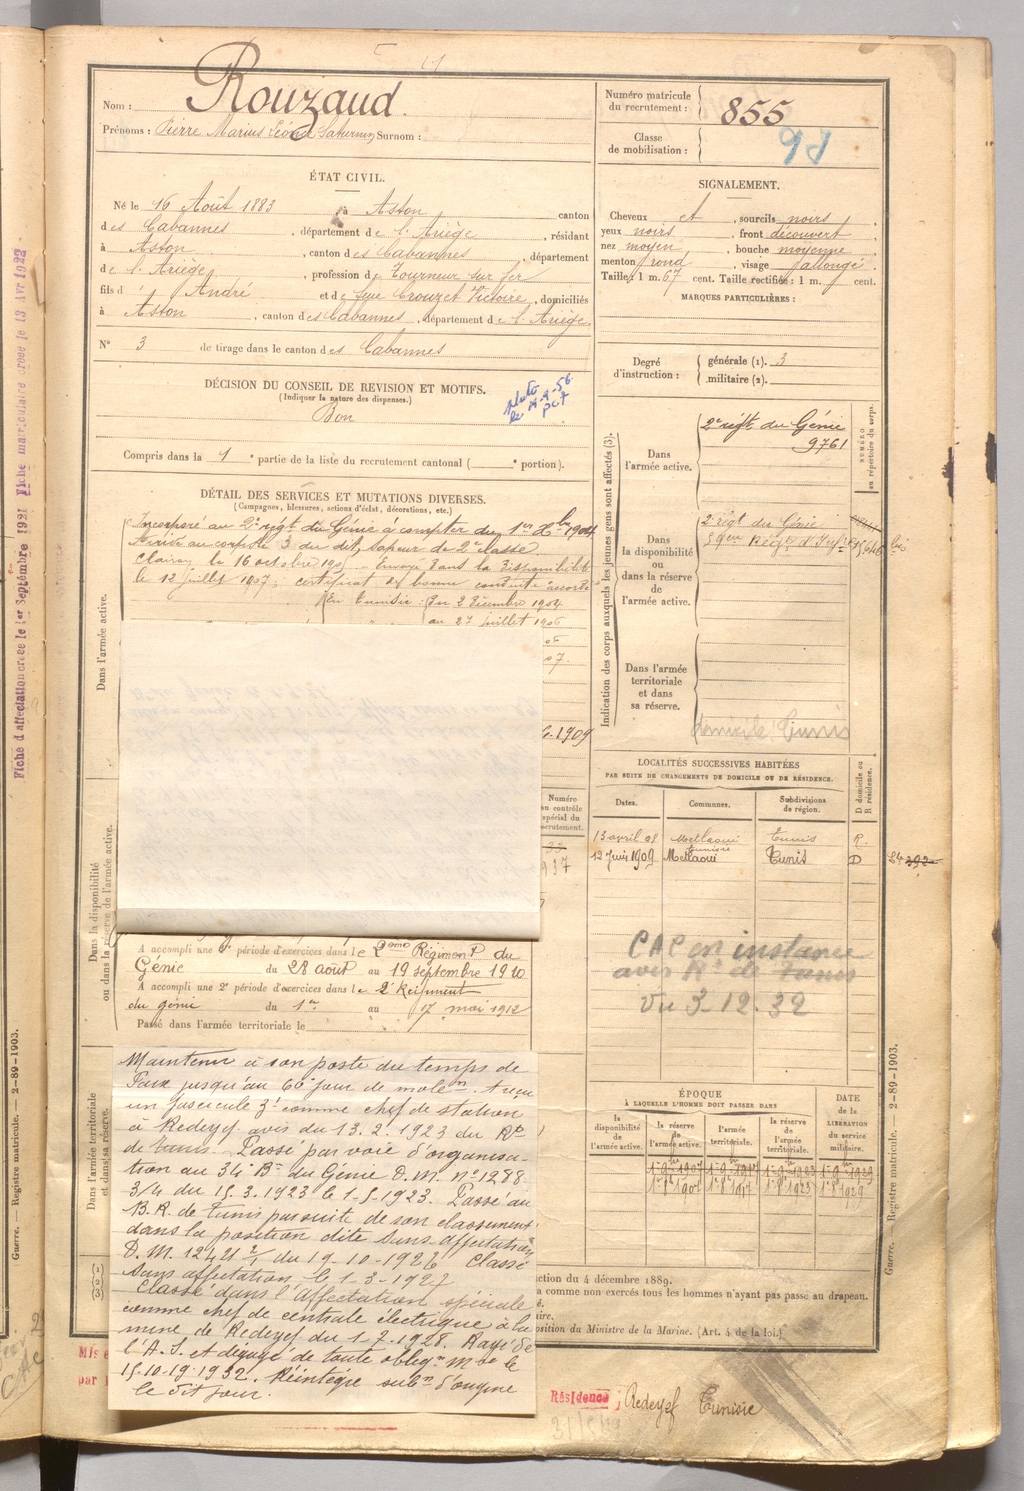 Nom : Rouzaud.
Prénoms : Pierre Marius Léon Saturnin, Surnom :
Numéro matricule du recrutement : 855
Classe de mobilisation :
ÉTAT CIVIL.
Né le 16 Août 1883 à Aston canton
des Cabannes, département de l'Ariège, résidant
à Aston, canton des Cabannes, département
de l'Ariège, profession de Tourneur sur fer
fils d'André et de feue Crouzet Victoire, domiciliés
à Aston, canton des Cabannes, département de l'Ariège.
N° 3 de tirage dans le canton des Cabannes
SIGNALEMENT.
Cheveux et, sourcils noirs
yeux noirs, front découvert
nez moyen, bouche moyenne
menton rond, visage allongé.
Taille : 1 m. 67 cent. Taille rectifiée : 1 m. cent.
MARQUES PARTICULIÈRES :
Degré d'instruction : générale (1). 3
militaire (2).
DÉCISION DU CONSEIL DE REVISION ET MOTIFS.
(Indiquer la nature des dispenses.)
Bon
Compris dans la 1e partie de la liste du recrutement cantonal ( e portion).
DÉTAIL DES SERVICES ET MUTATIONS DIVERSES.
(Campagnes, blessures, actions d'éclat, décorations, etc.)
Dans l'armée active.
Incorporé au 2e régt du Génie à compter du 1er Xbre 1904
Arrivé au corps le 3 du dit, sapeur de 2e classe
Clairon le 16 octobre 1905 Envoyé dans la disponibilité
le 12 juillet 1907, certificat de bonne conduite accordé
En Tunisie : Du 2 Décembre 1904
au 27 juillet 1906
07.
1909
Numéro
au contrôle
spécial du
recrutement.
Indication des corps auxquels les jeunes gens sont affectés (3).
Dans l'armée active.
2e régt du Génie
9761
NUMÉRO au répertoire du corps.
Dans la disponibilité ou dans la réserve de l'armée active.
2 régt du Génie
Dans l'armée territoriale et dans sa réserve.
domicile Tunis
LOCALITÉS SUCCESSIVES HABITÉES
PAR SUITE DE CHANGEMENTS DE DOMICILE OU DE RÉSIDENCE.
Dates. Communes. Subdivisions de région. D domicile ou R résidence.
13 avril 08 Metlaoui Tunis R.
Tunisie
12 Juin 1909 Metlaoui Tunis D
CAC en instance
avis Rt de Tunis
Vu 3-12.32
Dans la disponibilité ou dans la réserve de l'armée active.
A accompli une 1e période d'exercices dans le 2ème Régiment du
Génie du 28 août au 19 septembre 1910
A accompli une 2e période d'exercices dans le 2e Régiment
du génie du 1er au 17 mai 1912
Passé dans l'armée territoriale le
Dans l'armée territoriale et dans sa réserve.
Maintenu à son poste du temps de
Paix jusqu'au 60e jour de mobon. A reçu
un fascicule Z1 comme chef de station
à Redeyef. avis du 13.2.1923 du Rt
de Tunis. Passé par voie d'organisa-
tion au 34e Bn du Génie D.M. n° 1288
3/4 du 15.3.1923 le 1-5-1923. Passé au
B.R. de Tunis par suite de son classement
dans la position dite Sans affectation
D.M. 12421 du 19-10-1926 Classé
Sans affectation le 1-3-1927
Classé dans l'Affectation spéciale
comme chef de centrale électrique à la
mine de Redeyef du 1-7-1928. Rayé de
l'A.S. et dégagé de toute obligon mre le
15-10-1932. Réintégré subon d'origine
le dit jour.
ÉPOQUE
À LAQUELLE L'HOMME DOIT PASSER DANS
la disponibilité de l'armée active. la réserve de l'armée active. l'armée territoriale. la réserve de l'armée territoriale.
DATE de la LIBÉRATION du service militaire.
ction du 4 décembre 1889.
a comme non exercés tous les hommes n'ayant pas passé au drapeau.
osition du Ministre de la Marine. (Art. 4 de la loi.)
Résidence ; Redeyef Tunisie
Fiche d'affectation créée le 1er Septembre 1921 Fiche matriculaire créée le 13 Avr 1922
Guerre. — Registre matricule. — 2-89-1903.
Guerre. — Registre matricule. — 2-89-1903.